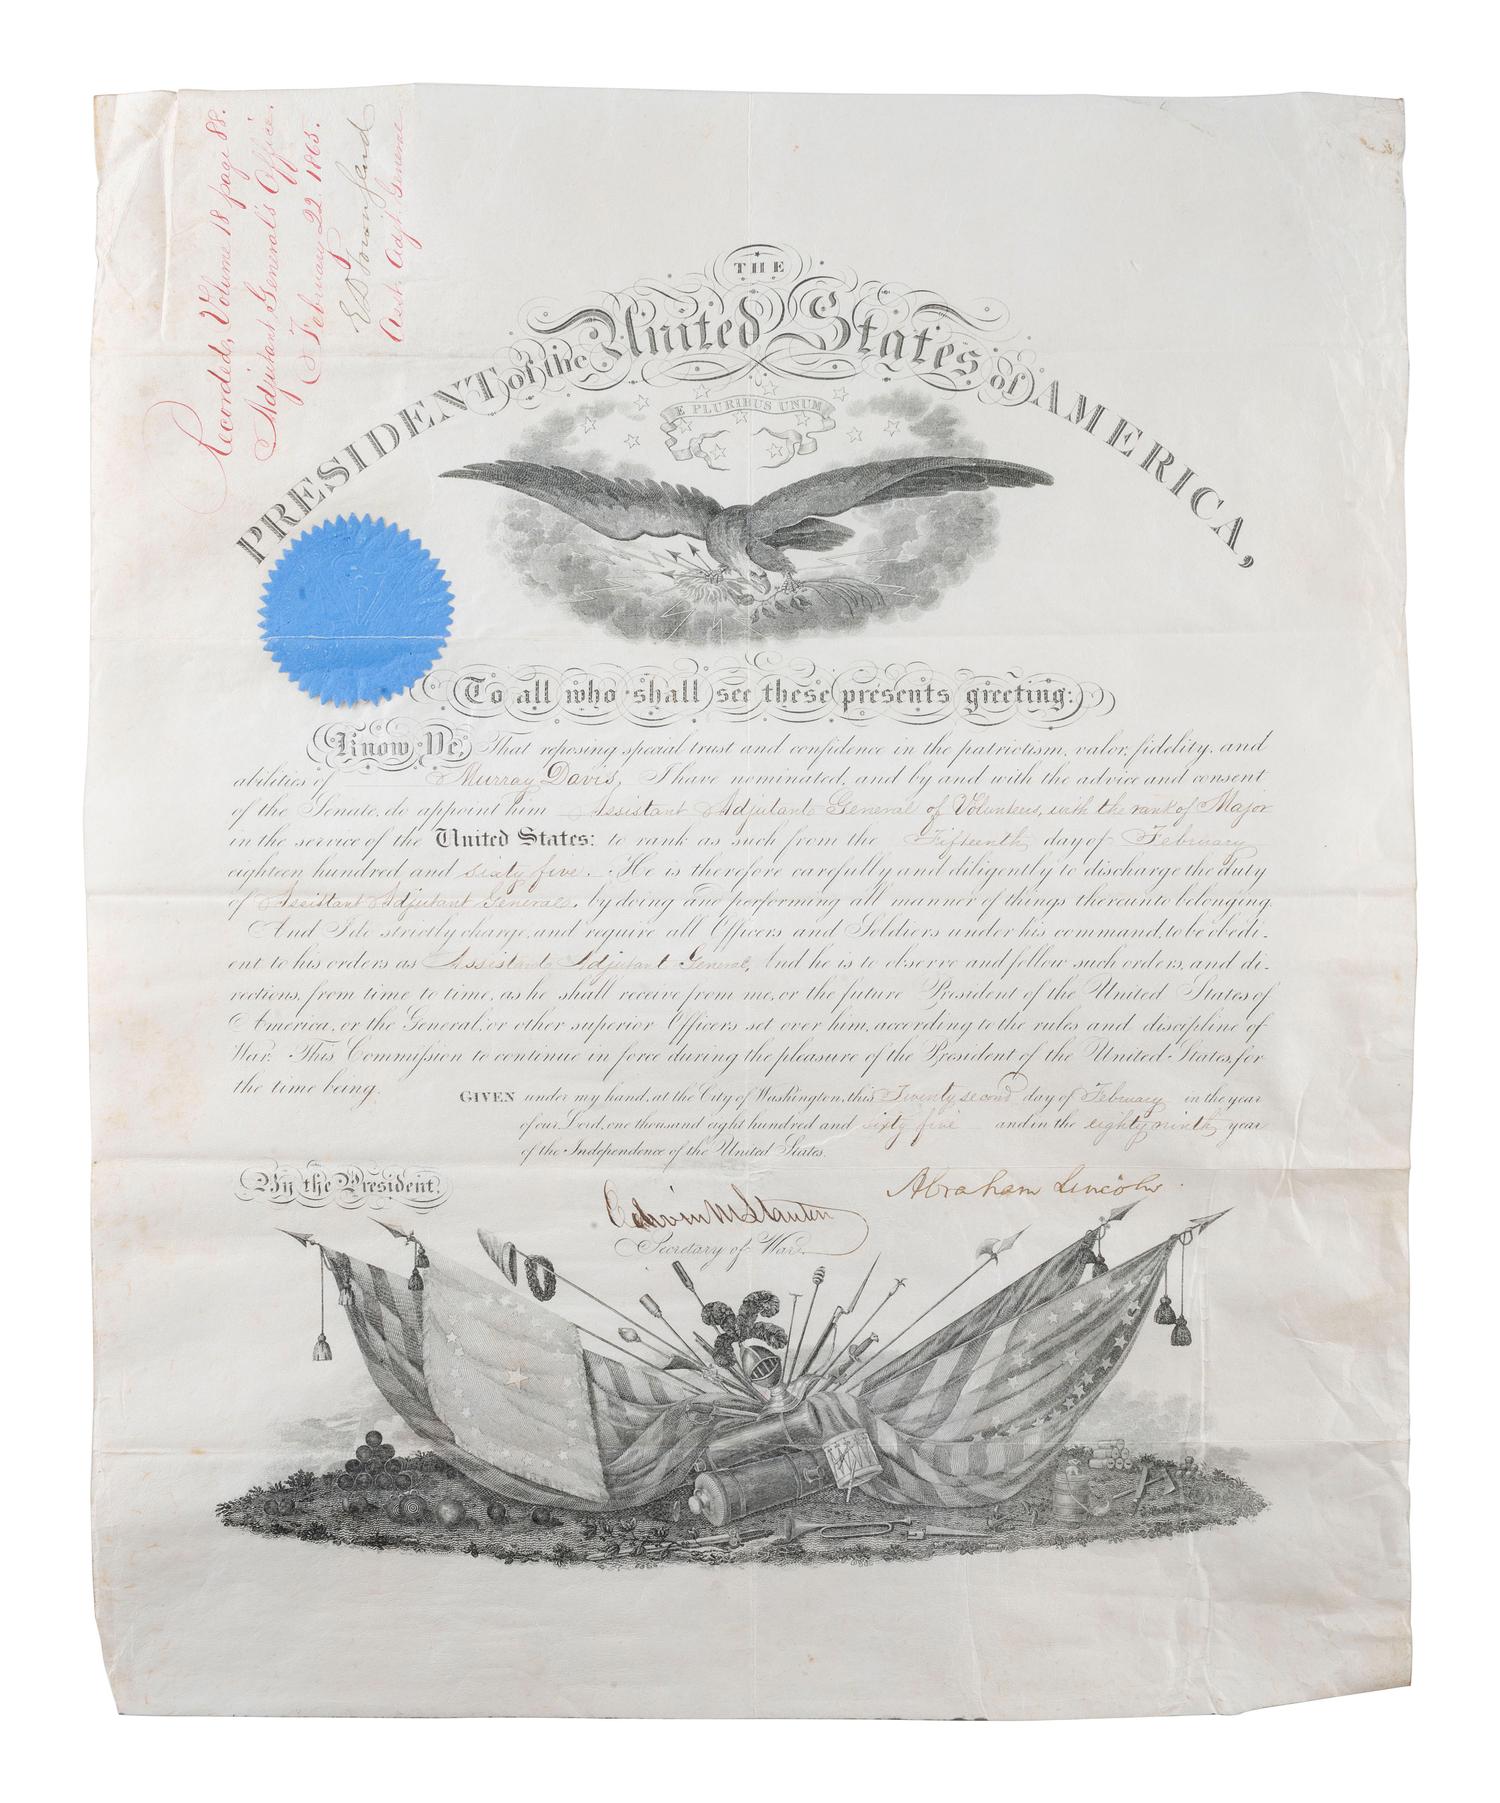 Recorded, Volume 18 page 88.
Adjutant General's Office.
February 22 1865.
E D Townsend
Asst. Adjt. General
THE
PRESIDENT of the United States of AMERICA,
E PLURIBUS UNUM
To all who shall see these presents greeting:
Know Ye, That reposing special trust and confidence in the patriotism, valor, fidelity, and
abilities of Murray Davis, I have nominated, and by and with the advice and consent
of the Senate, do appoint him Assistant Adjutant General of Volunteers, with the rank of Major
in the service of the United States: to rank as such from the Fifteenth day of February
eighteen hundred and sixty five. He is therefore carefully and diligently to discharge the duty
of Assistant Adjutant General, by doing and performing all manner of things thereunto belonging.
And I do strictly charge, and require all Officers and Soldiers under his command, to be obedi-
ent to his orders as Assistant Adjutant General, And he is to observe and follow such orders, and di-
rections, from time to time, as he shall receive from me, or the future President of the United States of
America, or the General, or other superior Officers set over him, according to the rules and discipline of
War. This Commission to continue in force during the pleasure of the President of the United States, for
the time being.
GIVEN under my hand, at the City of Washington, this Twenty second day of February in the year
of our Lord, one thousand eight hundred and sixty five and in the eighty ninth year
of the Independence of the United States.
By the President.
Abraham Lincoln
Edwin M Stanton
Secretary of War.